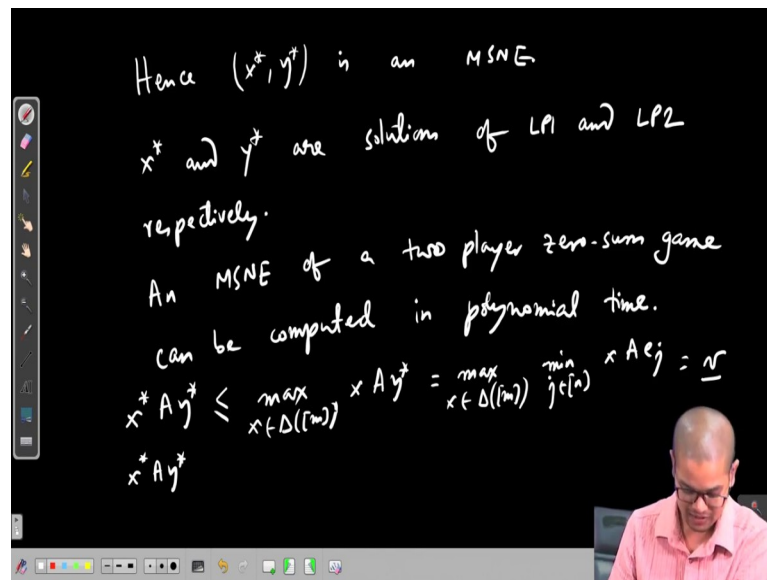 Hence (x*, y*) is an MSNE.
x* and y* are solution of LP1 and LP2
respectively.
An MSNE of a two player zero-sum game
can be computed in polynomial time.
x* A y* ≤ max_{x∈Δ([m])} x A y* = max_{x∈Δ([m])} min_{j∈[n]} x A e_j = v
x* A y*